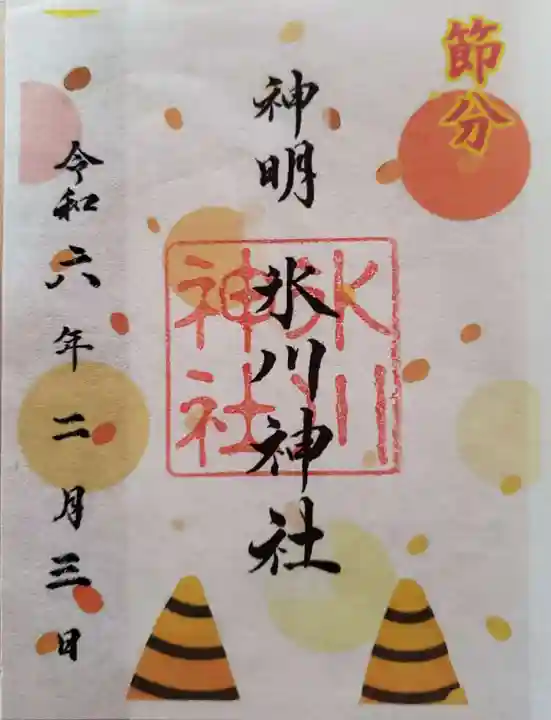 節分
神明
氷川神社
氷川
神社
令和六年二月三日